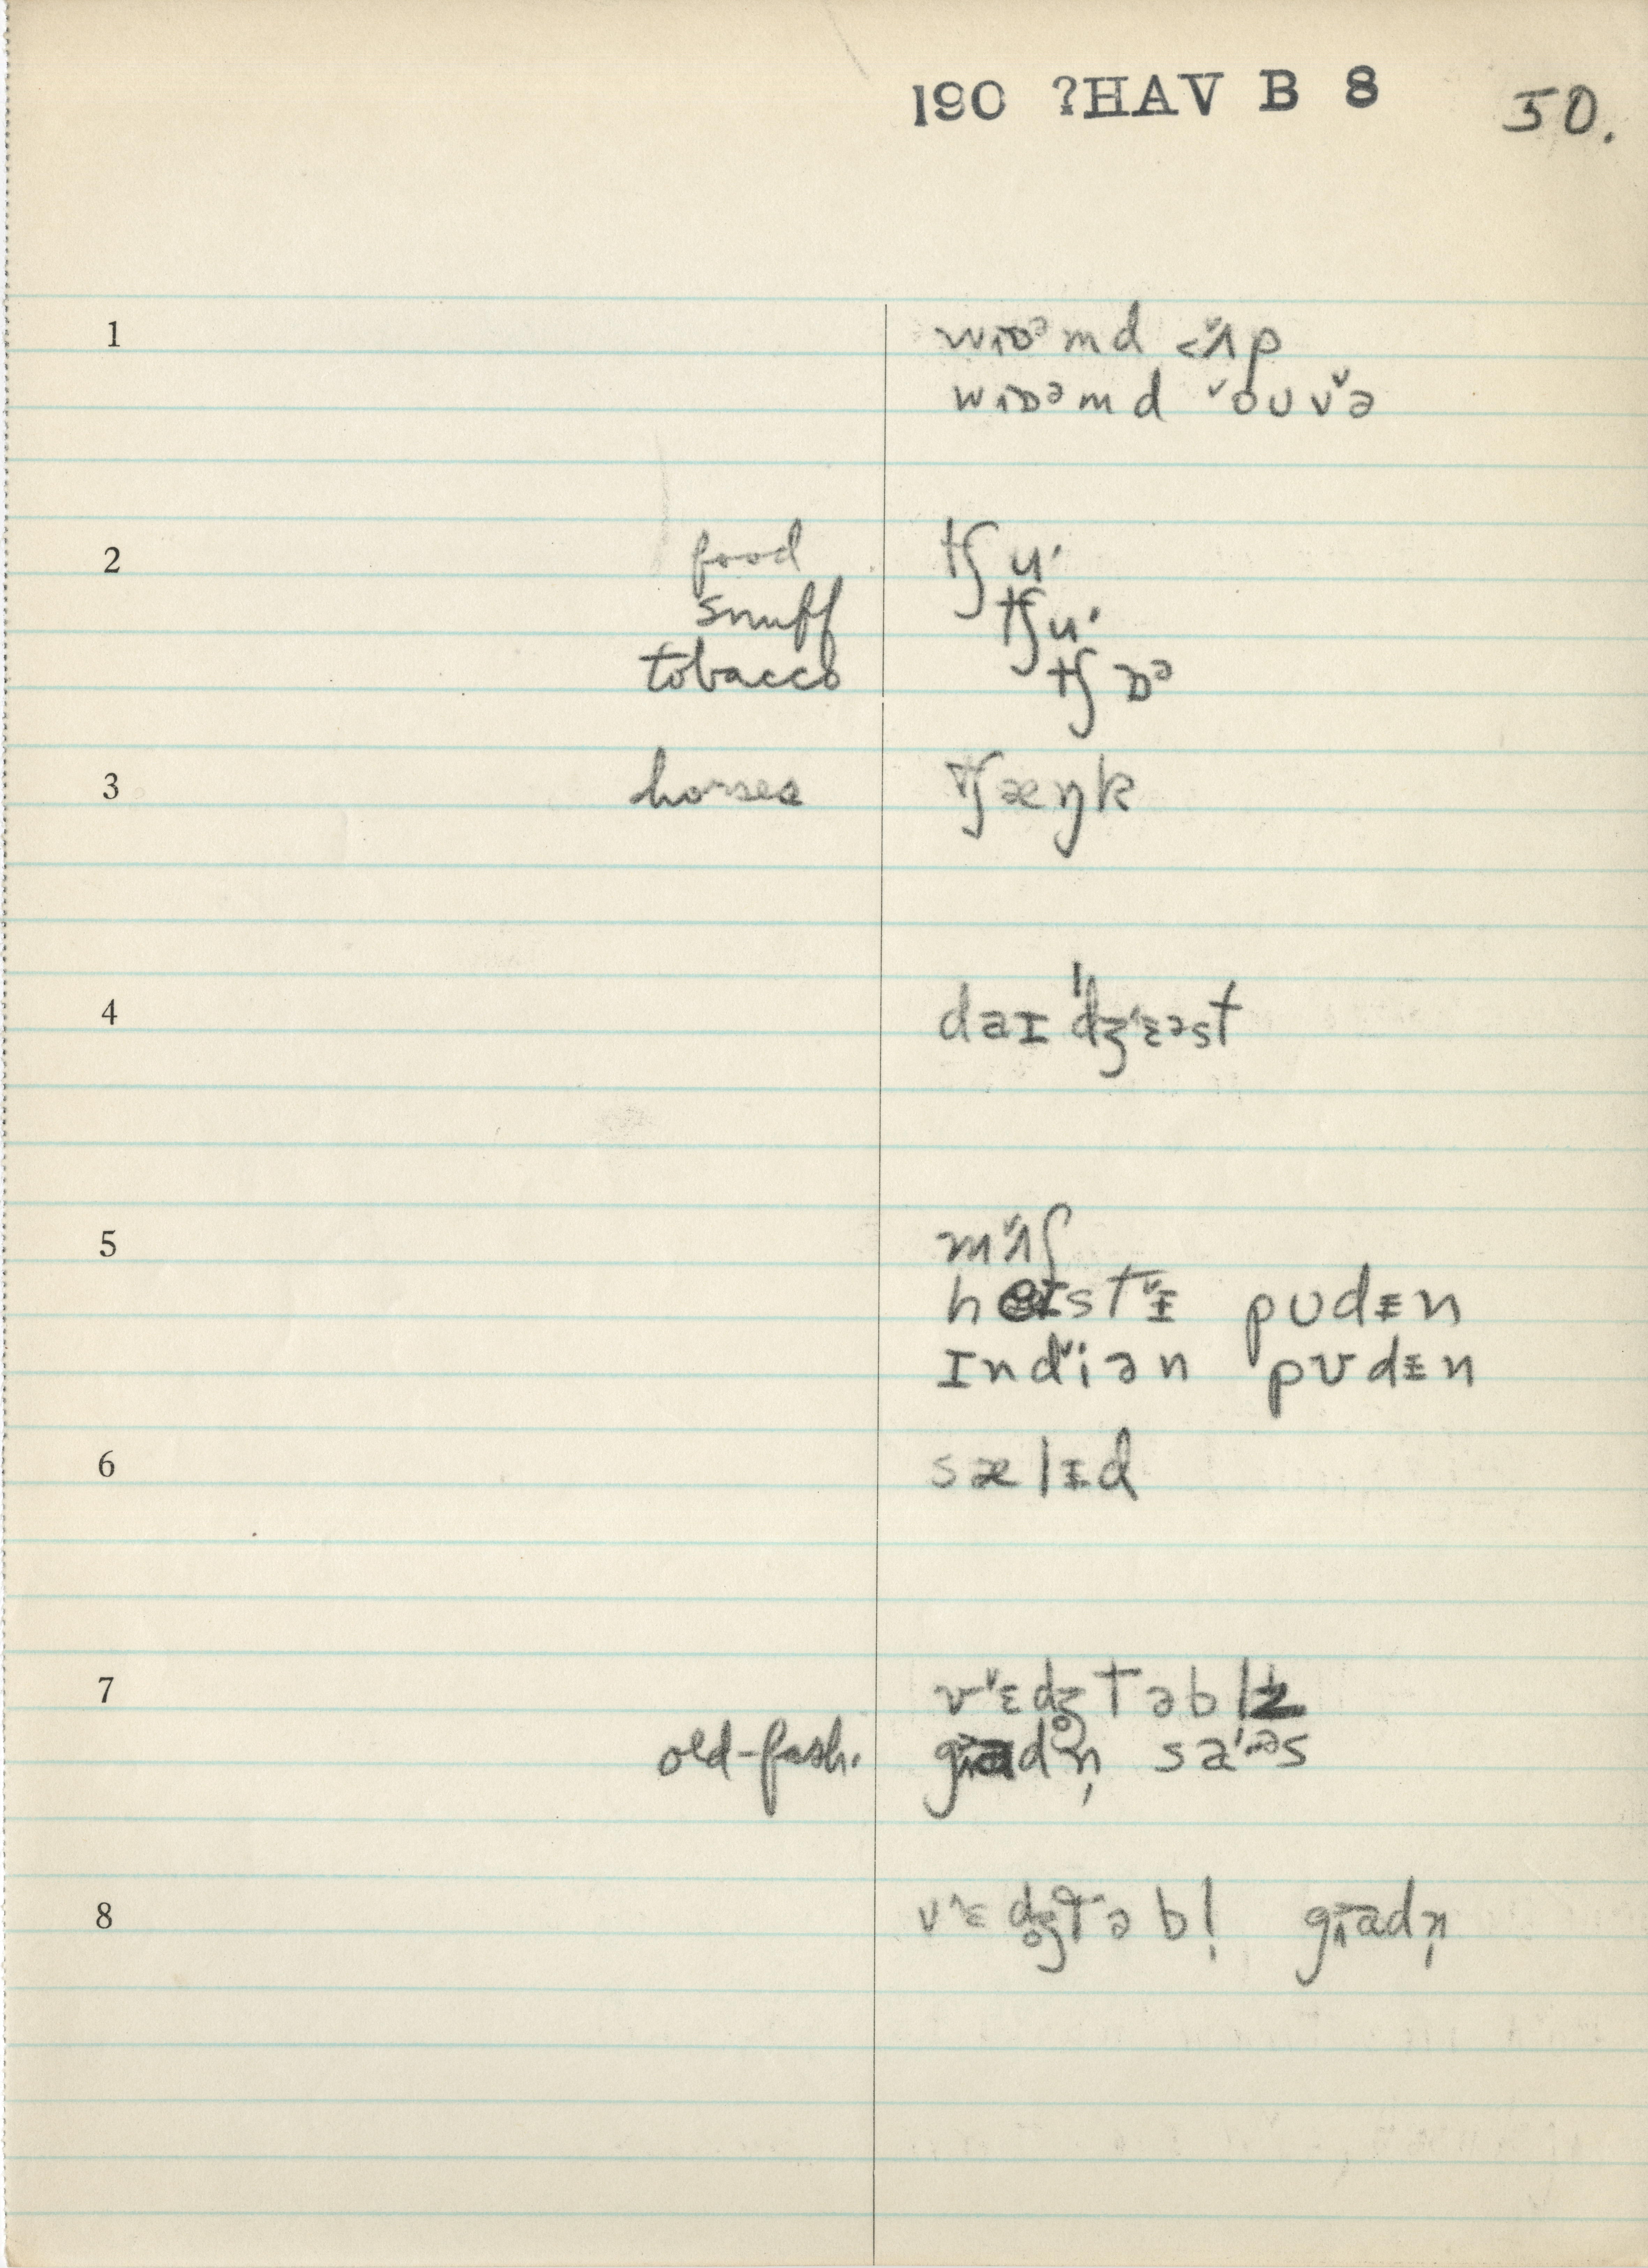 190 ?HAV B 8 50.
1 wɒᵊmd ʌp
wɒᵊmd oʊvə
2 food tʃu
snuff tʃu
tobacco tʃɒᵊ
3 horses tʃæŋk
4 daɪˈdʒɛəst
5 mʌʃ
heɪstᵻ pʊdᵻn
ɪndiən pʊdᵻn
6 sælᵻd
7 vɛdʒ̥təbl̩z
old-fash. gadn̩ saᵊs
8 vɛdʒ̥təbl̩ gadn̩